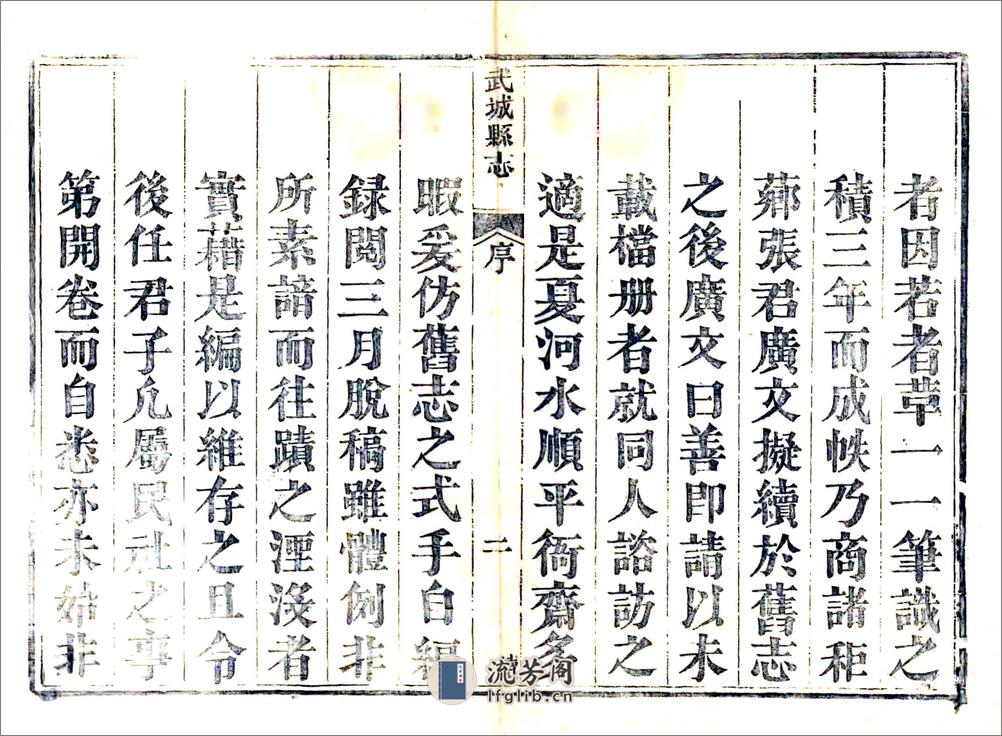 者因若者革一一筆識之
積三年而成帙乃商諸秬
薌張君廣文擬續於舊志
之後廣文曰善即請以未
載檔册者就同人諮訪之
適是夏河水順平衙齋多
武城縣志 序 二
暇爰仿舊志之式手自編
録閲三月脫稿雖體例非
所素諳而往蹟之湮沒者
實藉是編以維存之且令
後任君子凡屬民社之事
第開卷而自悉亦未始非
流芳阁
lfglib.cn